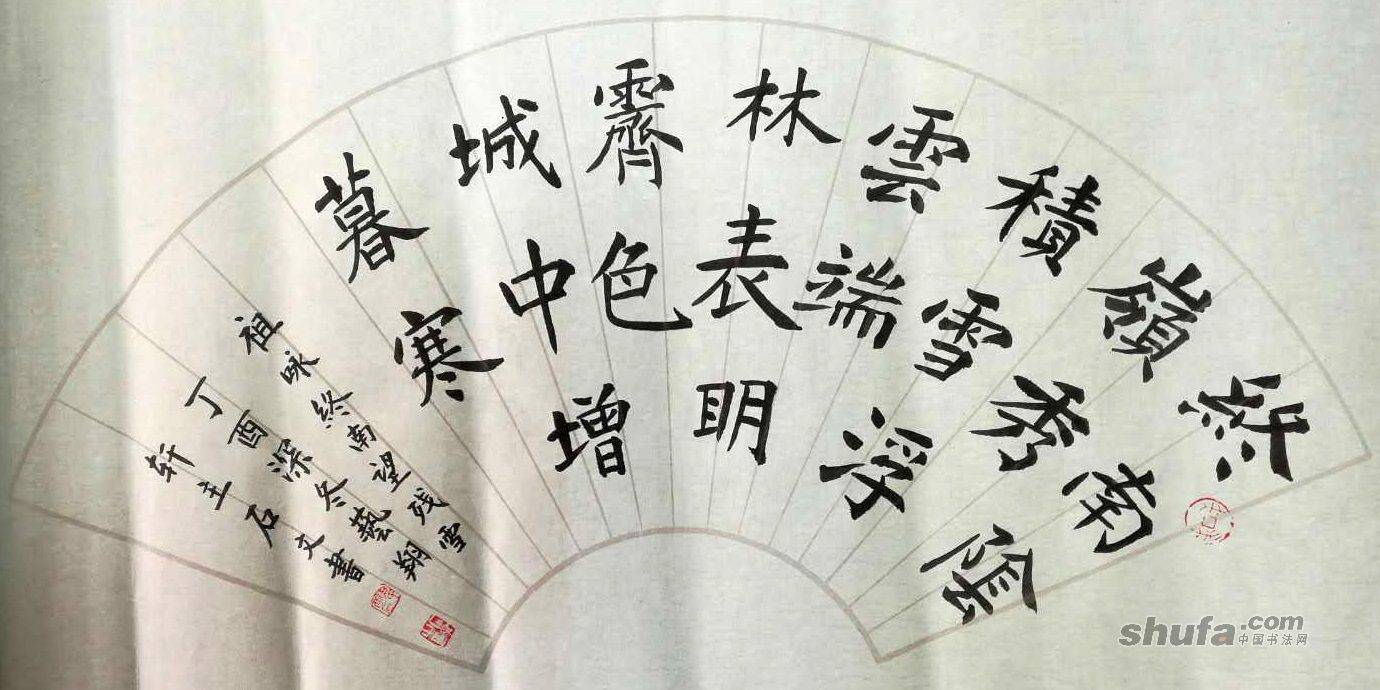 終南陰
嶺秀
積雪浮
雲端
林表明
霽色
城中增
暮寒
祖咏終南望残雪
丁酉深冬藝翔
轩主石文書
shufa.com
中国书法网